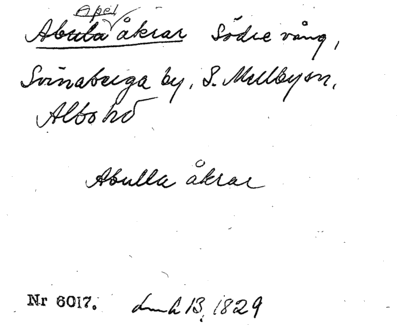 Apel
Abula åkrar Södre vång,
Svinaberga by, S. Mellbysn,
Albo hd
Abulla åkrar
Nr 6017. B, 1829